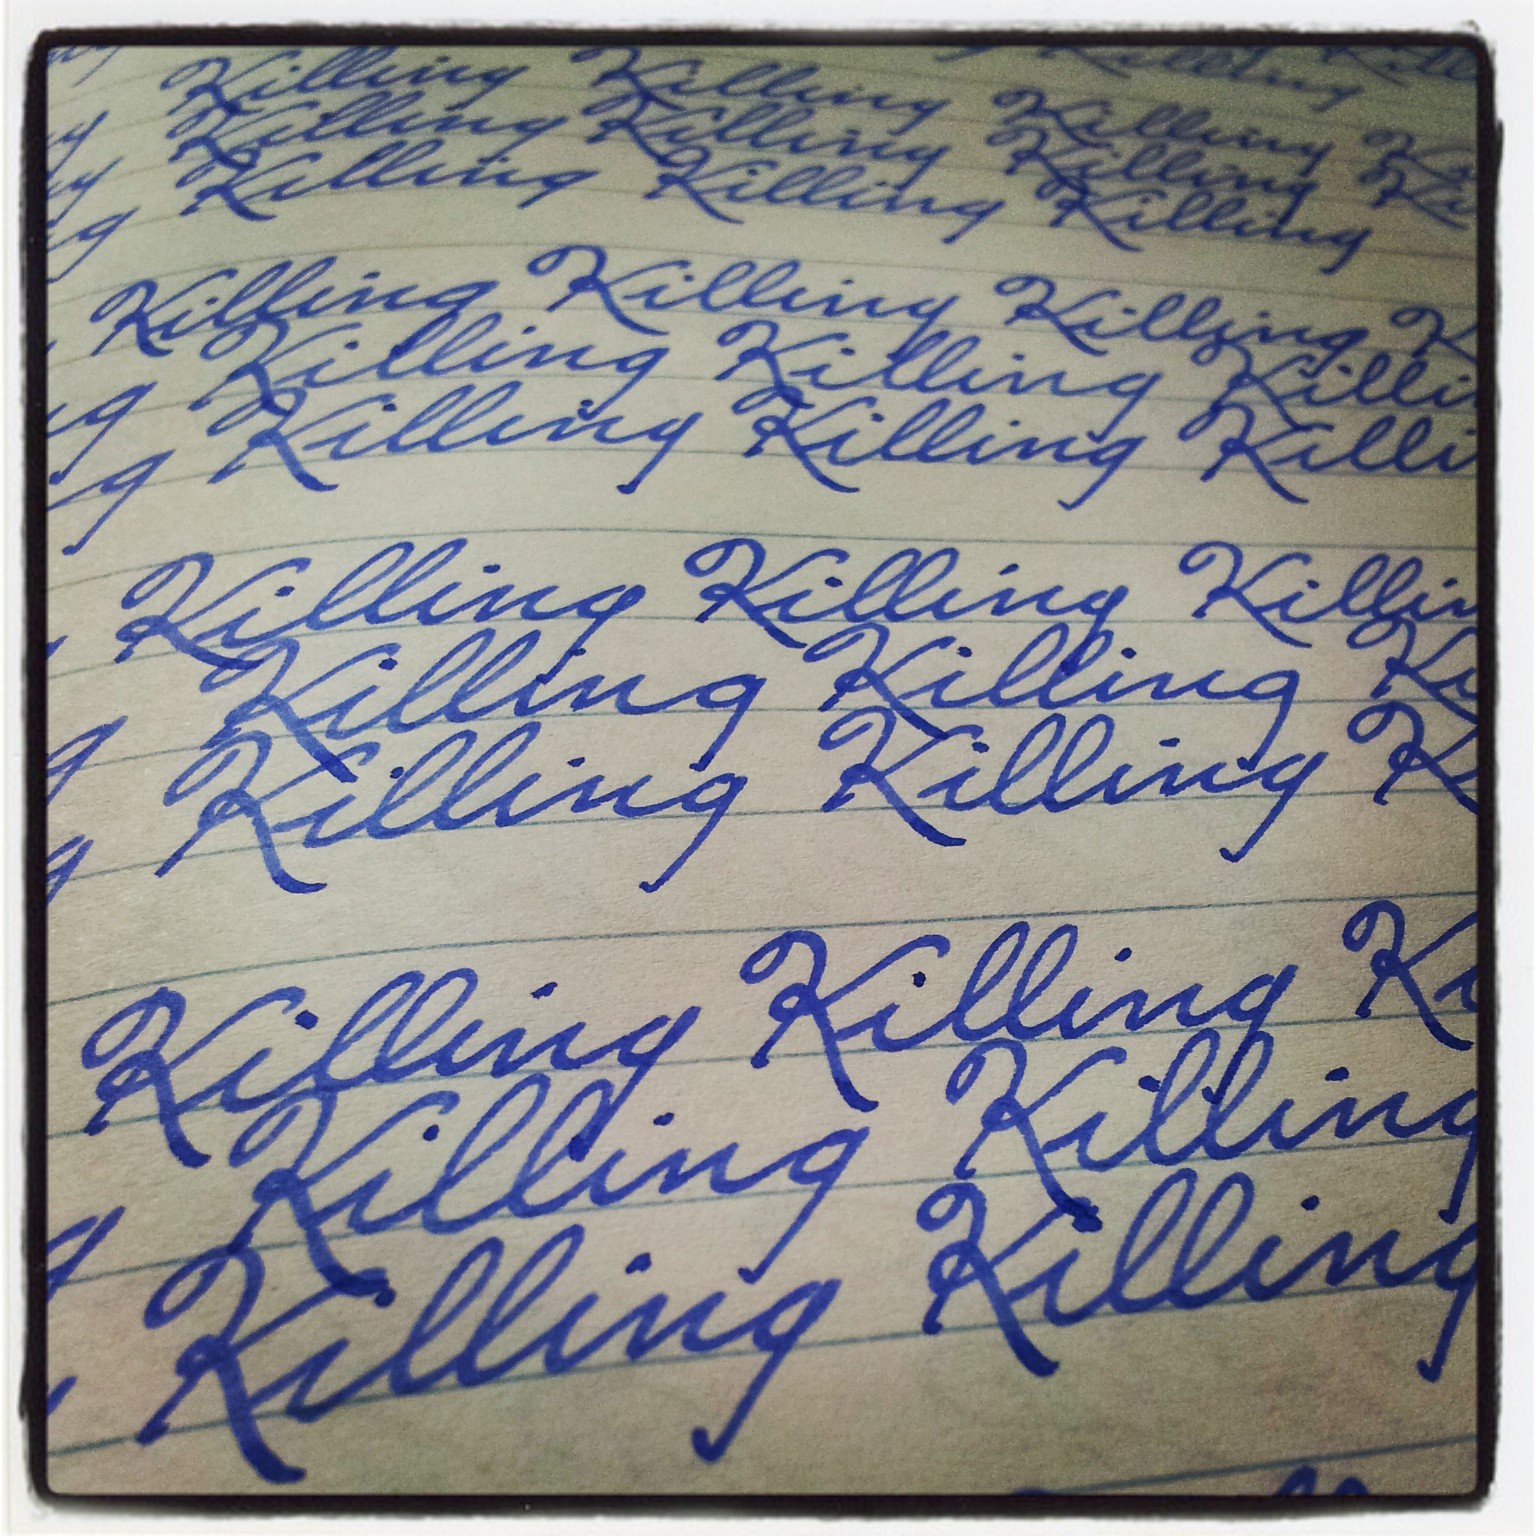 Killing
Killing Killing Killing
Killing Killing Killing
Killing Killing Killing
Killing Killing Killing
Killing Killing Killi
Killing Killing Killi
Killing Killing Killin
Killing Killing Ki
Killing Killing K
Killing Killing Ki
Killing Killing
Killing Killing